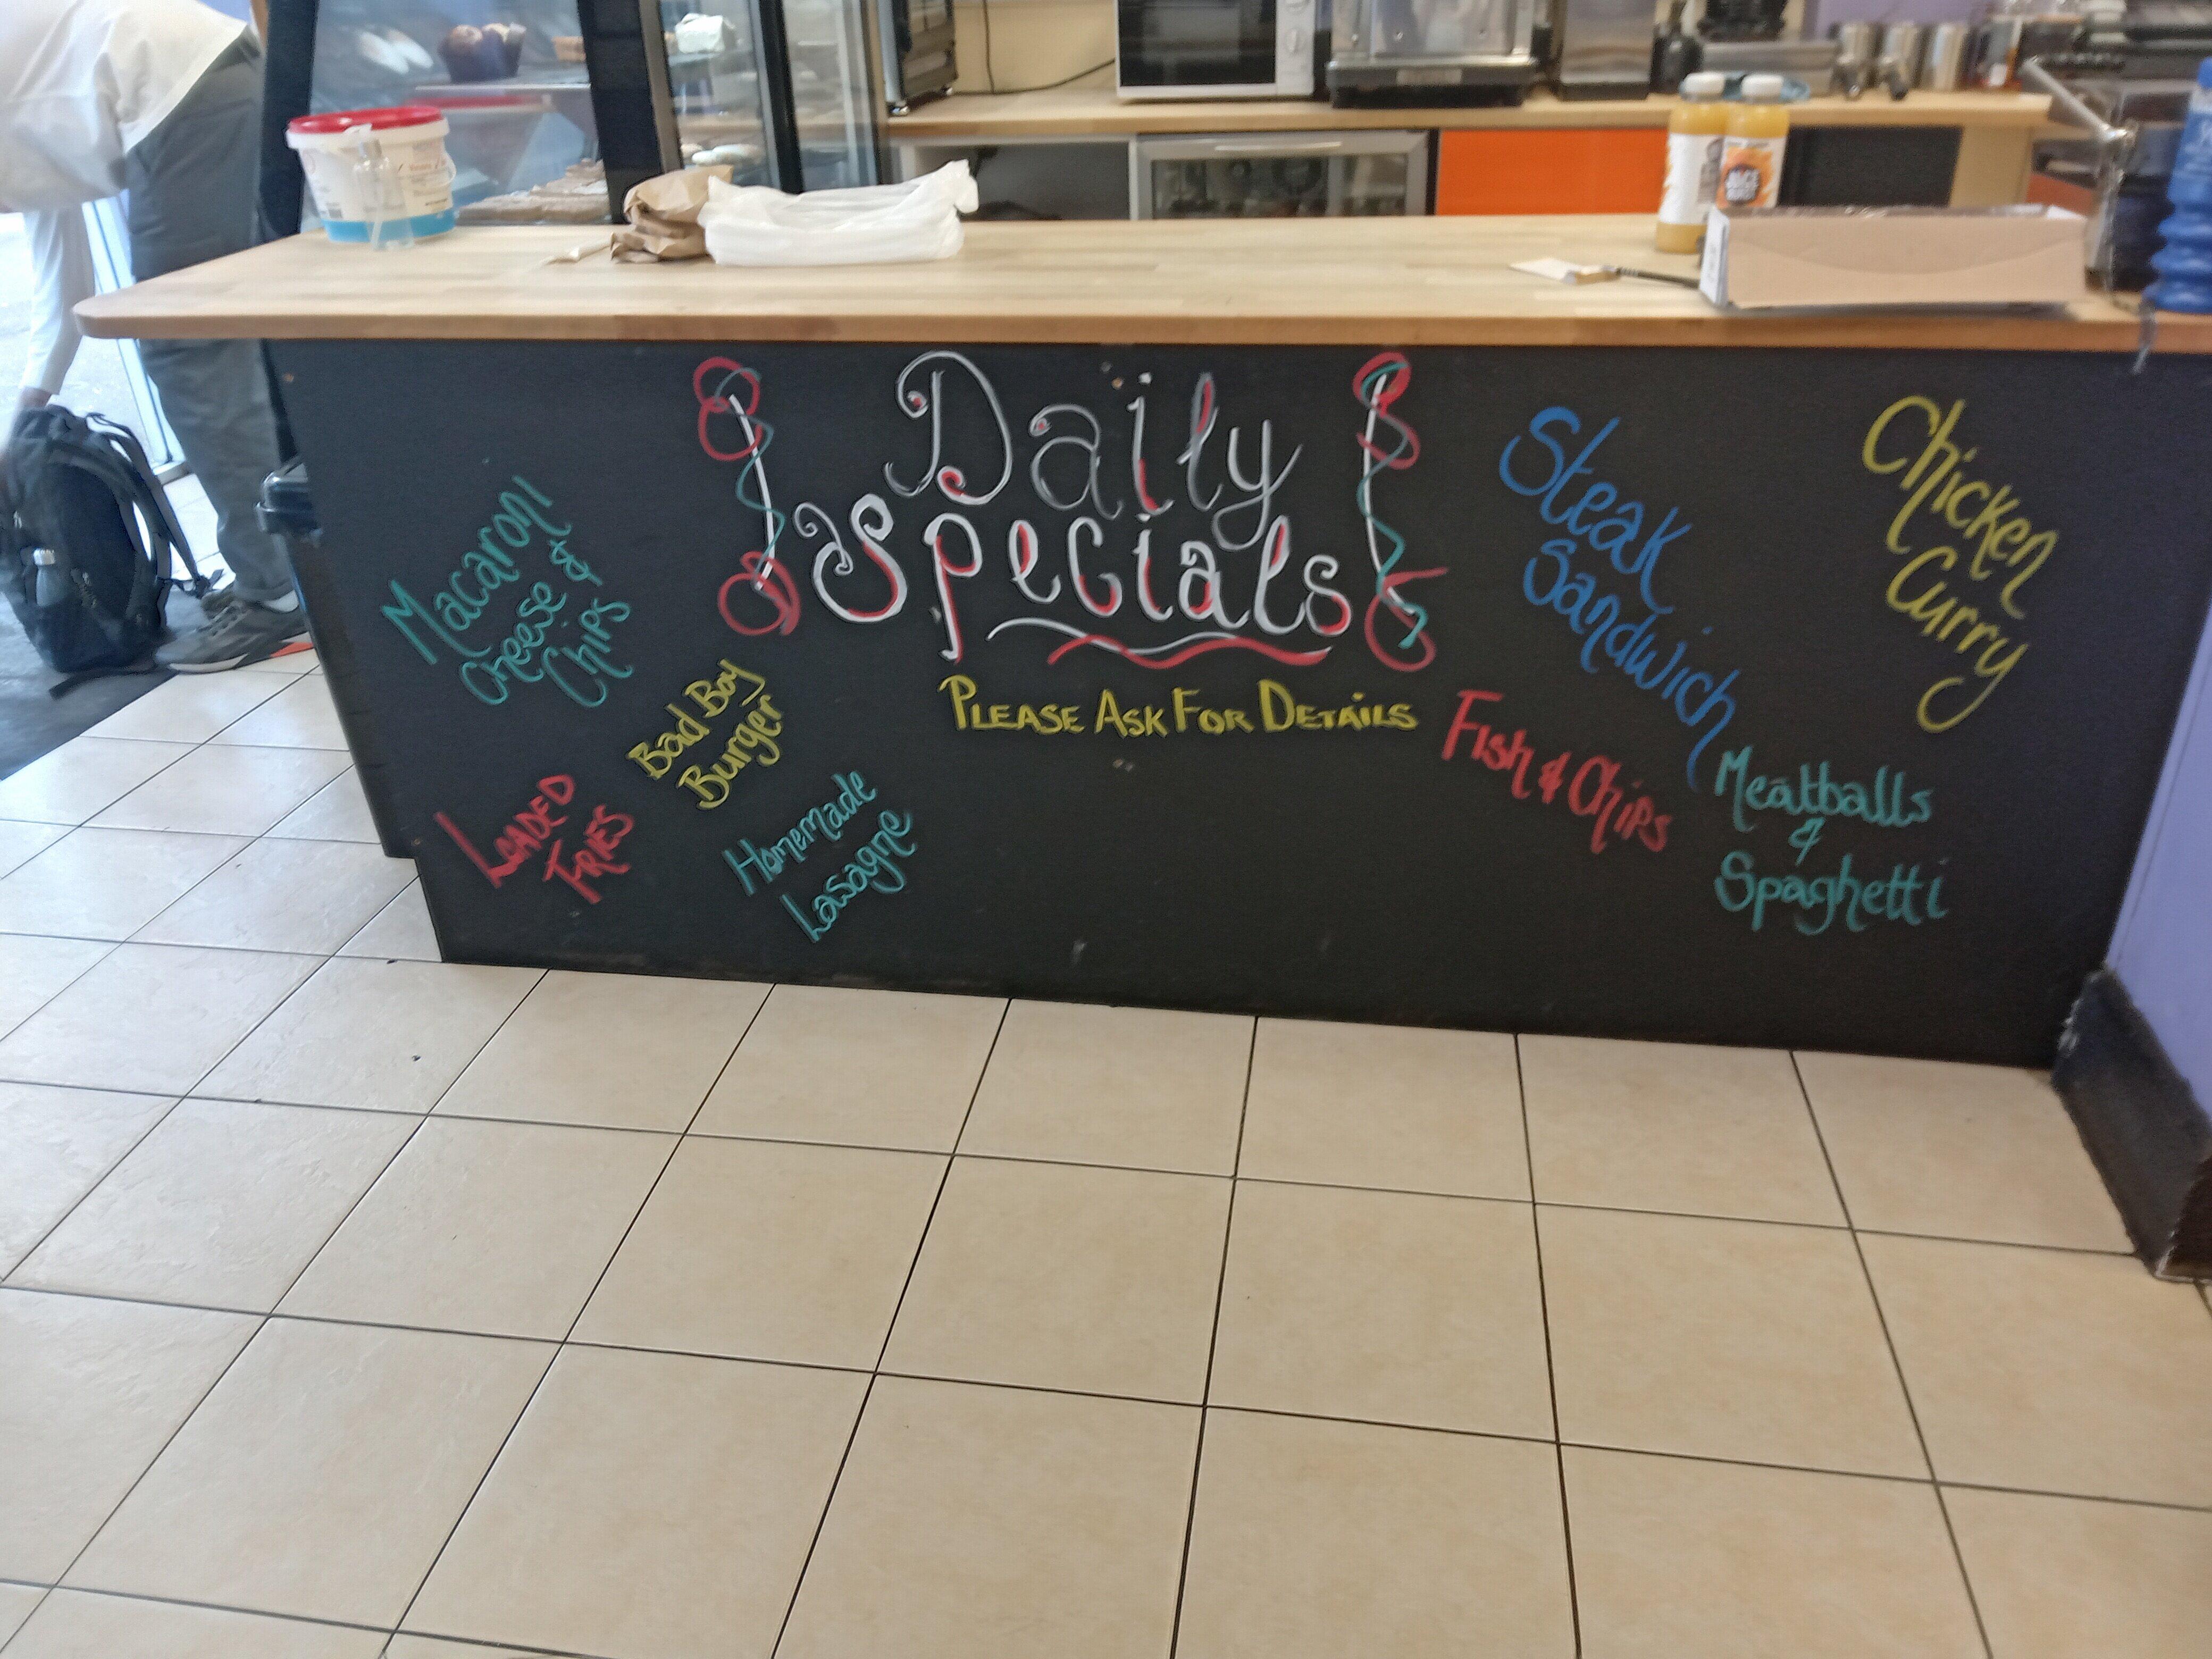 Daily
Specials
PLEASE ASK FOR DETAILS
Macaroni
Cheese &
Chips
Bad Boy
Burger
LOADED
FRIES
Homemade
Lasagne
Steak
Sandwich
Chicken
Curry
Fish & Chips
Meatballs
&
Spaghetti